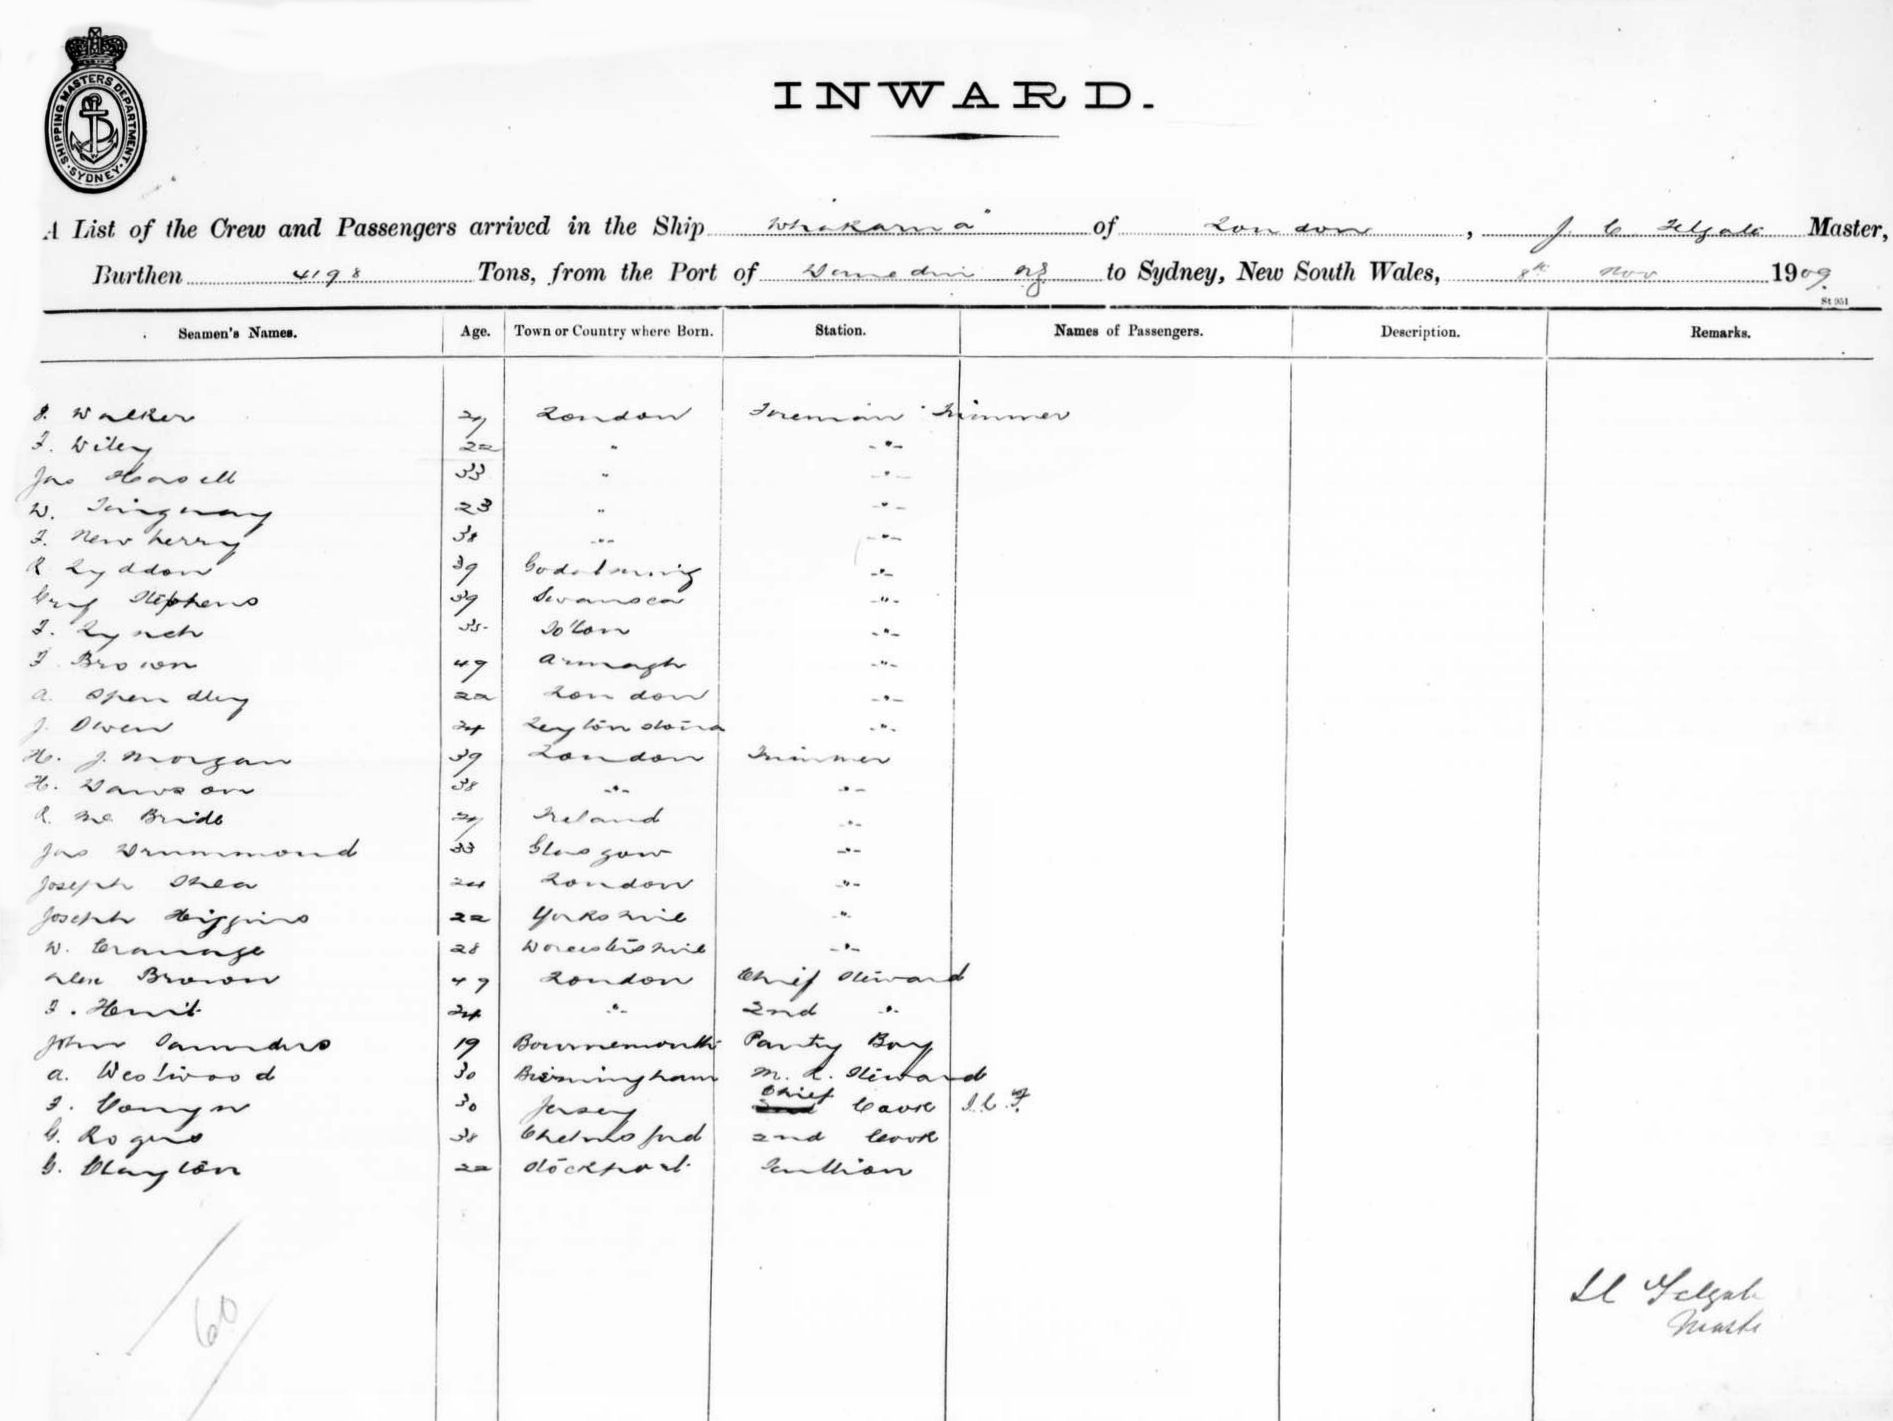 SHIPPING MASTERS DEPARTMENT.
SYDNEY
INWARD.
A List of the Crew and Passengers arrived in the Ship "Whakarua" of London, J. C. Felgate Master,
Burthen 4198 Tons, from the Port of Dunedin NZ to Sydney, New South Wales, 8th Nov 1909.
St 951
Seamen's Names. Age. Town or Country where Born. Station. Names of Passengers. Description. Remarks.
J. Walker 27 London Fireman Trimmer
F. Wiley 22 " "
Jas 33 " "
W. 23 " "
F. Newberry 38 " "
R Lyddon 39 Godalming "
Stephens 39 Swansea "
F. Lynch 35 "
F Brown 49 Armagh "
A. Spendley 22 London "
J. Owen 24 Leytonstone "
H. J. Morgan 39 London Trimmer
H. Dawson 38 " "
R. Mc Bride 27 Ireland "
Jas Drummond 33 Glasgow "
Joseph Shea 24 London "
Joseph Higgins 22 Yorkshire "
W. Cranage 28 Worcestershire "
Alex Brown 49 London Chief Steward
F. 24 " 2nd "
John Saunders 19 Bournemouth Pantry Boy
A. Westwood 30 Birmingham M. R. Steward
F. 30 Jersey Chief Cook J.C.F.
C. Rogers 38 Chelmsford 2nd Cook
C. Clayton 22 Stockport Scullion
60
J C Felgate
Master